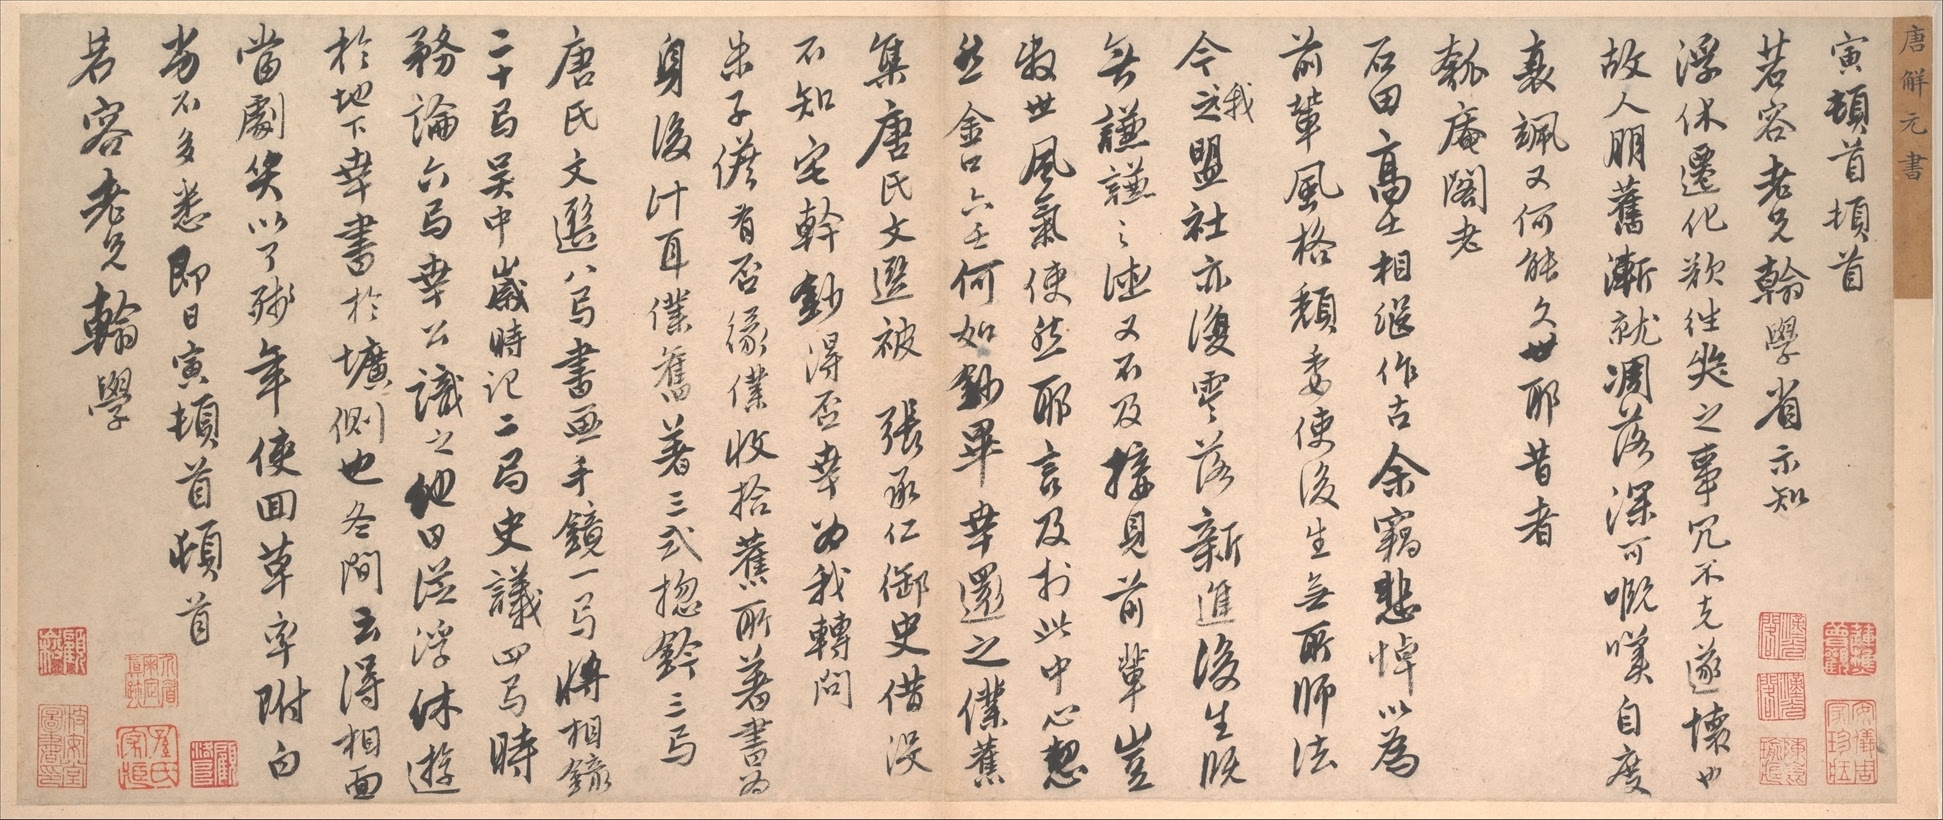 唐解元書
寅頓首頓首
若容老兄翰學省示知
浮休遷化歎徃之事冗不克遂懷也
故人朋舊漸就凋落深可嘅嘆自度
衰颯又何能久世耶昔者
瓠庵閣老
石田高士相繼作古余竊悲悼以為
前輩風格頹委使後生無所師法
今我之盟社亦復零落新進後生既
無謙謙之德又不及接見前輩豈
衰世風氣使然耶言及於此中心愁
然金口六壬何如鈔畢幸還之僕舊
集唐氏文選被 張承仁御史借沒
不知宅幹鈔得否幸為我轉問
朱子儋有否緣僕收拾舊所著書為
身後計耳僕舊著三式揔鈐三局
唐氏文選八局書畫手鏡一局將相錄
二十局吳中歲時記二局史議四局時
務論六局幸公識之他日從浮休遊
於地下幸書於壙側也冬間去得相面
當劇笑以了殘年使回草率附白
當不多悉即日寅頓首頓首
若容老兄翰學